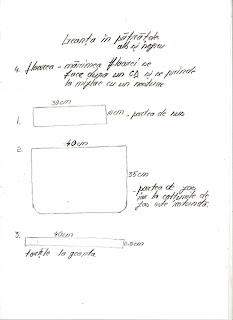 Geanta în pătrățele
alb și negru
4. floarea - mărimea floarei se
face după un CD și se prinde
la mijloc cu un nasture
38cm
1.
8cm
- partea de sus
40cm
2.
35cm
- partea de jos,
iar la colțurile de
jos este rotundă.
3.
40cm
2.5cm
torțile la geantă.